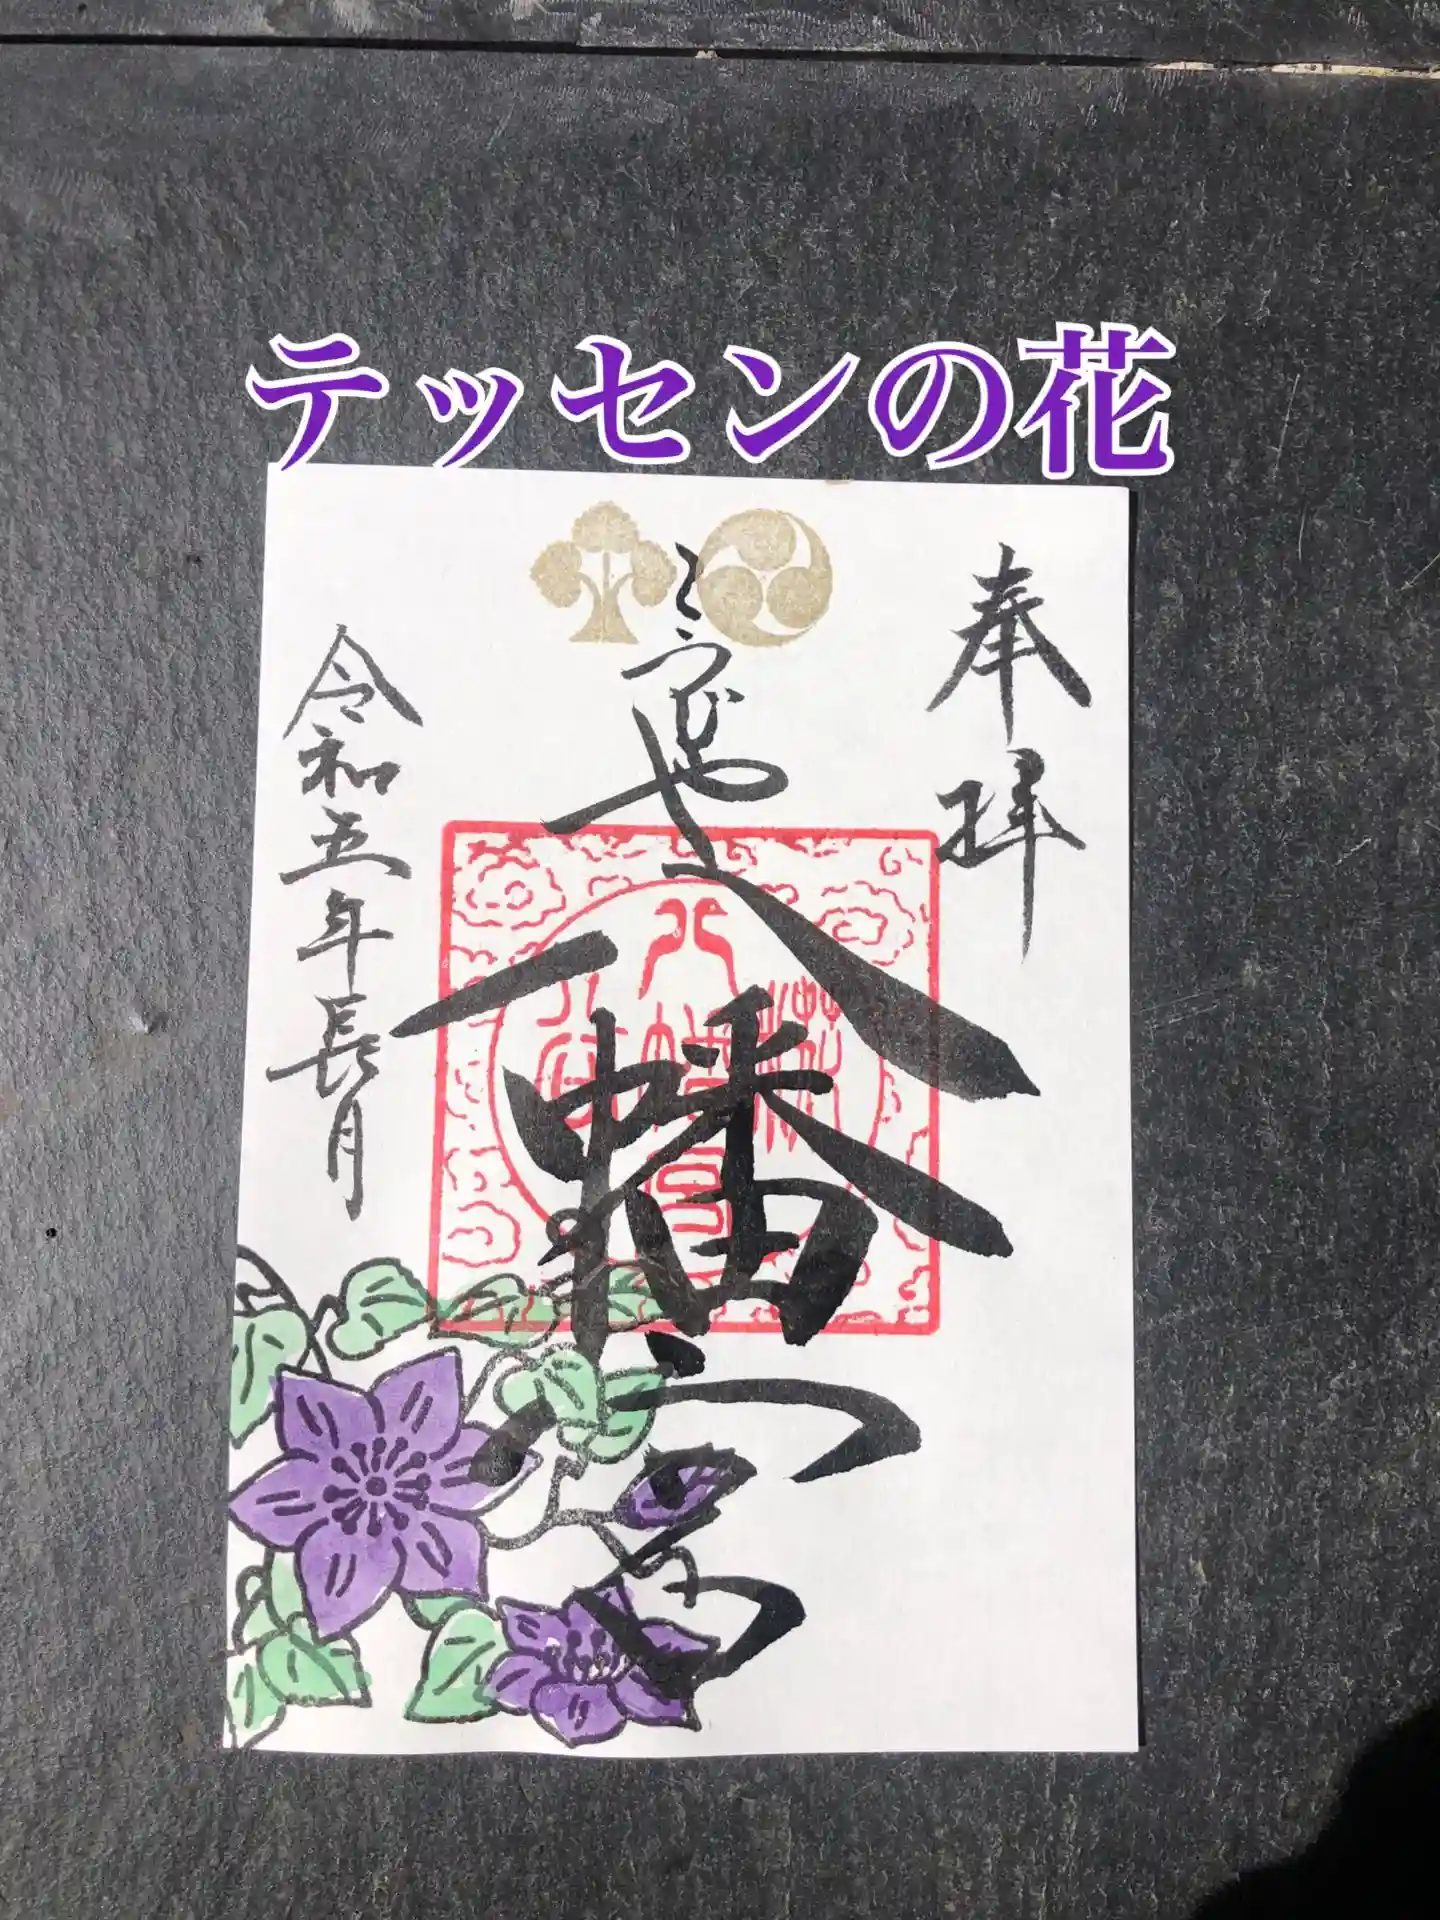 テッセンの花
奉拝
八幡宮
令和五年長月